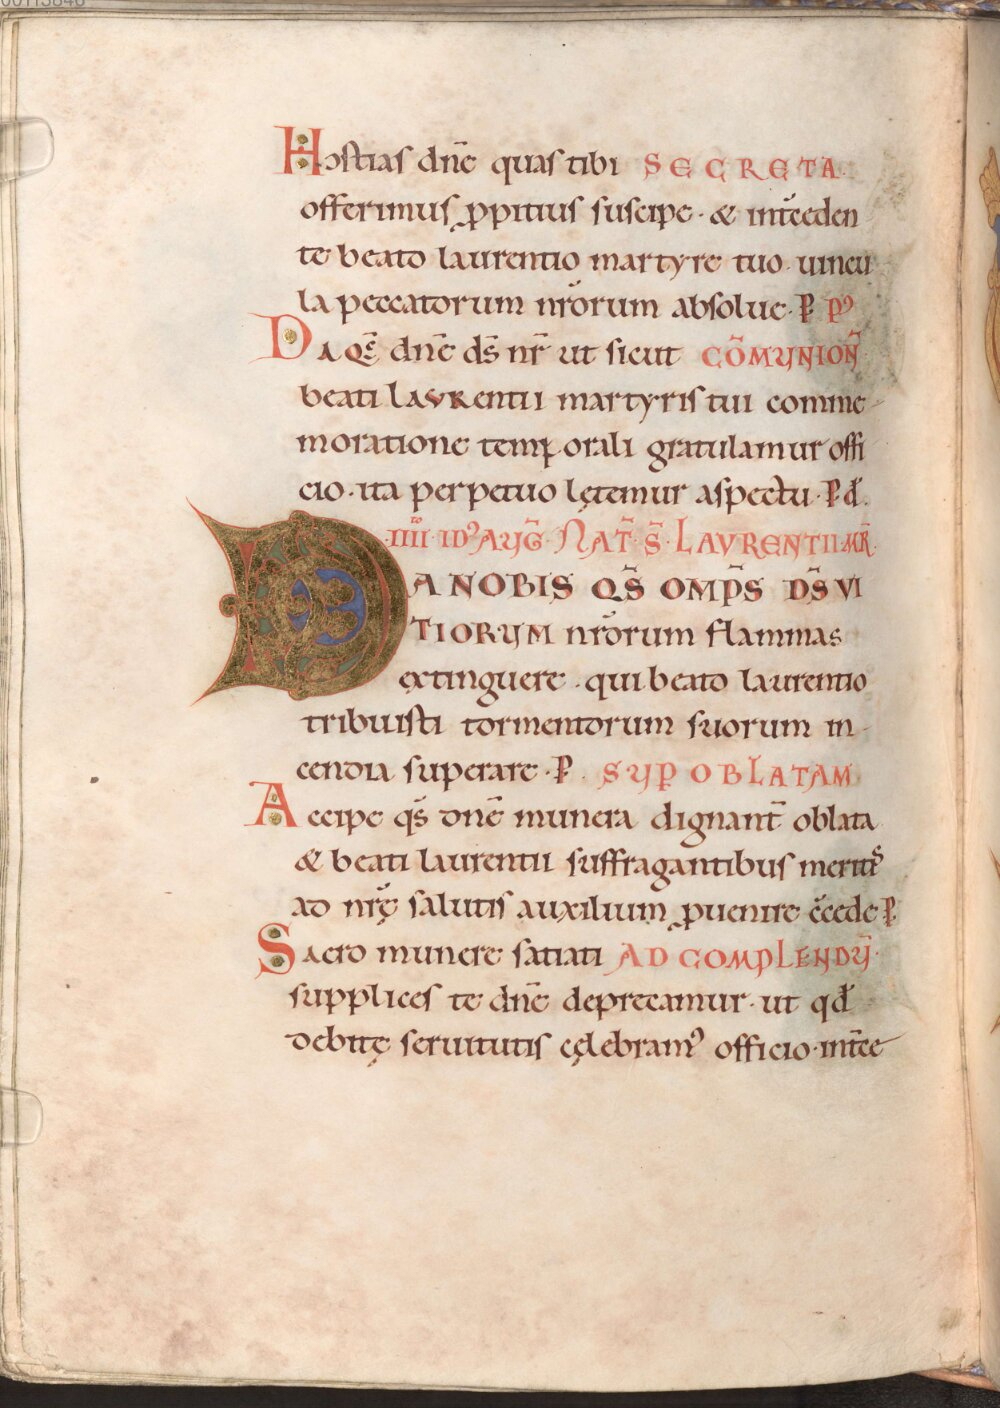 Hostias dnē quas tibi SECRETA
offerimus ꝓpitius suscipe · & intˀceden
te beato laurentio martyre tuo · uincu
la peccatorum nrˀorum absolue · P Pˀ
DA Qs̄ę dnē ds̄ nr̄ ut sicut CŌMUNIOÑ
beati LAURENtii martyris tui comme
moratione temporali gratulamur offi
cio · ita perpetuo lętemur aspectu · P đ.
IIII · IDˀ AUG̃ · NAT̃ · S̃ · LAURENTII · MR̃
DA NOBIS QS̄ OMPS̄ DS̄ VI
TIORUM nrˀorum flammas
extinguere · qui beato laurentio
tribuisti tormentorum suorum in
cendia superare · P · SUP OBLATAM
Accipe qs̄ dnē munera dignant̄ oblata
& beati laurentii suffragantibus meritˢ
ad nrˀę salutis auxilium ꝓuenire cˀcede P
Sacro munere satiati AD COMPLENDŪ
supplices te dnē deprecamur · ut qđ
debitę seruitutis cęlebramˀ officio · int̄ce